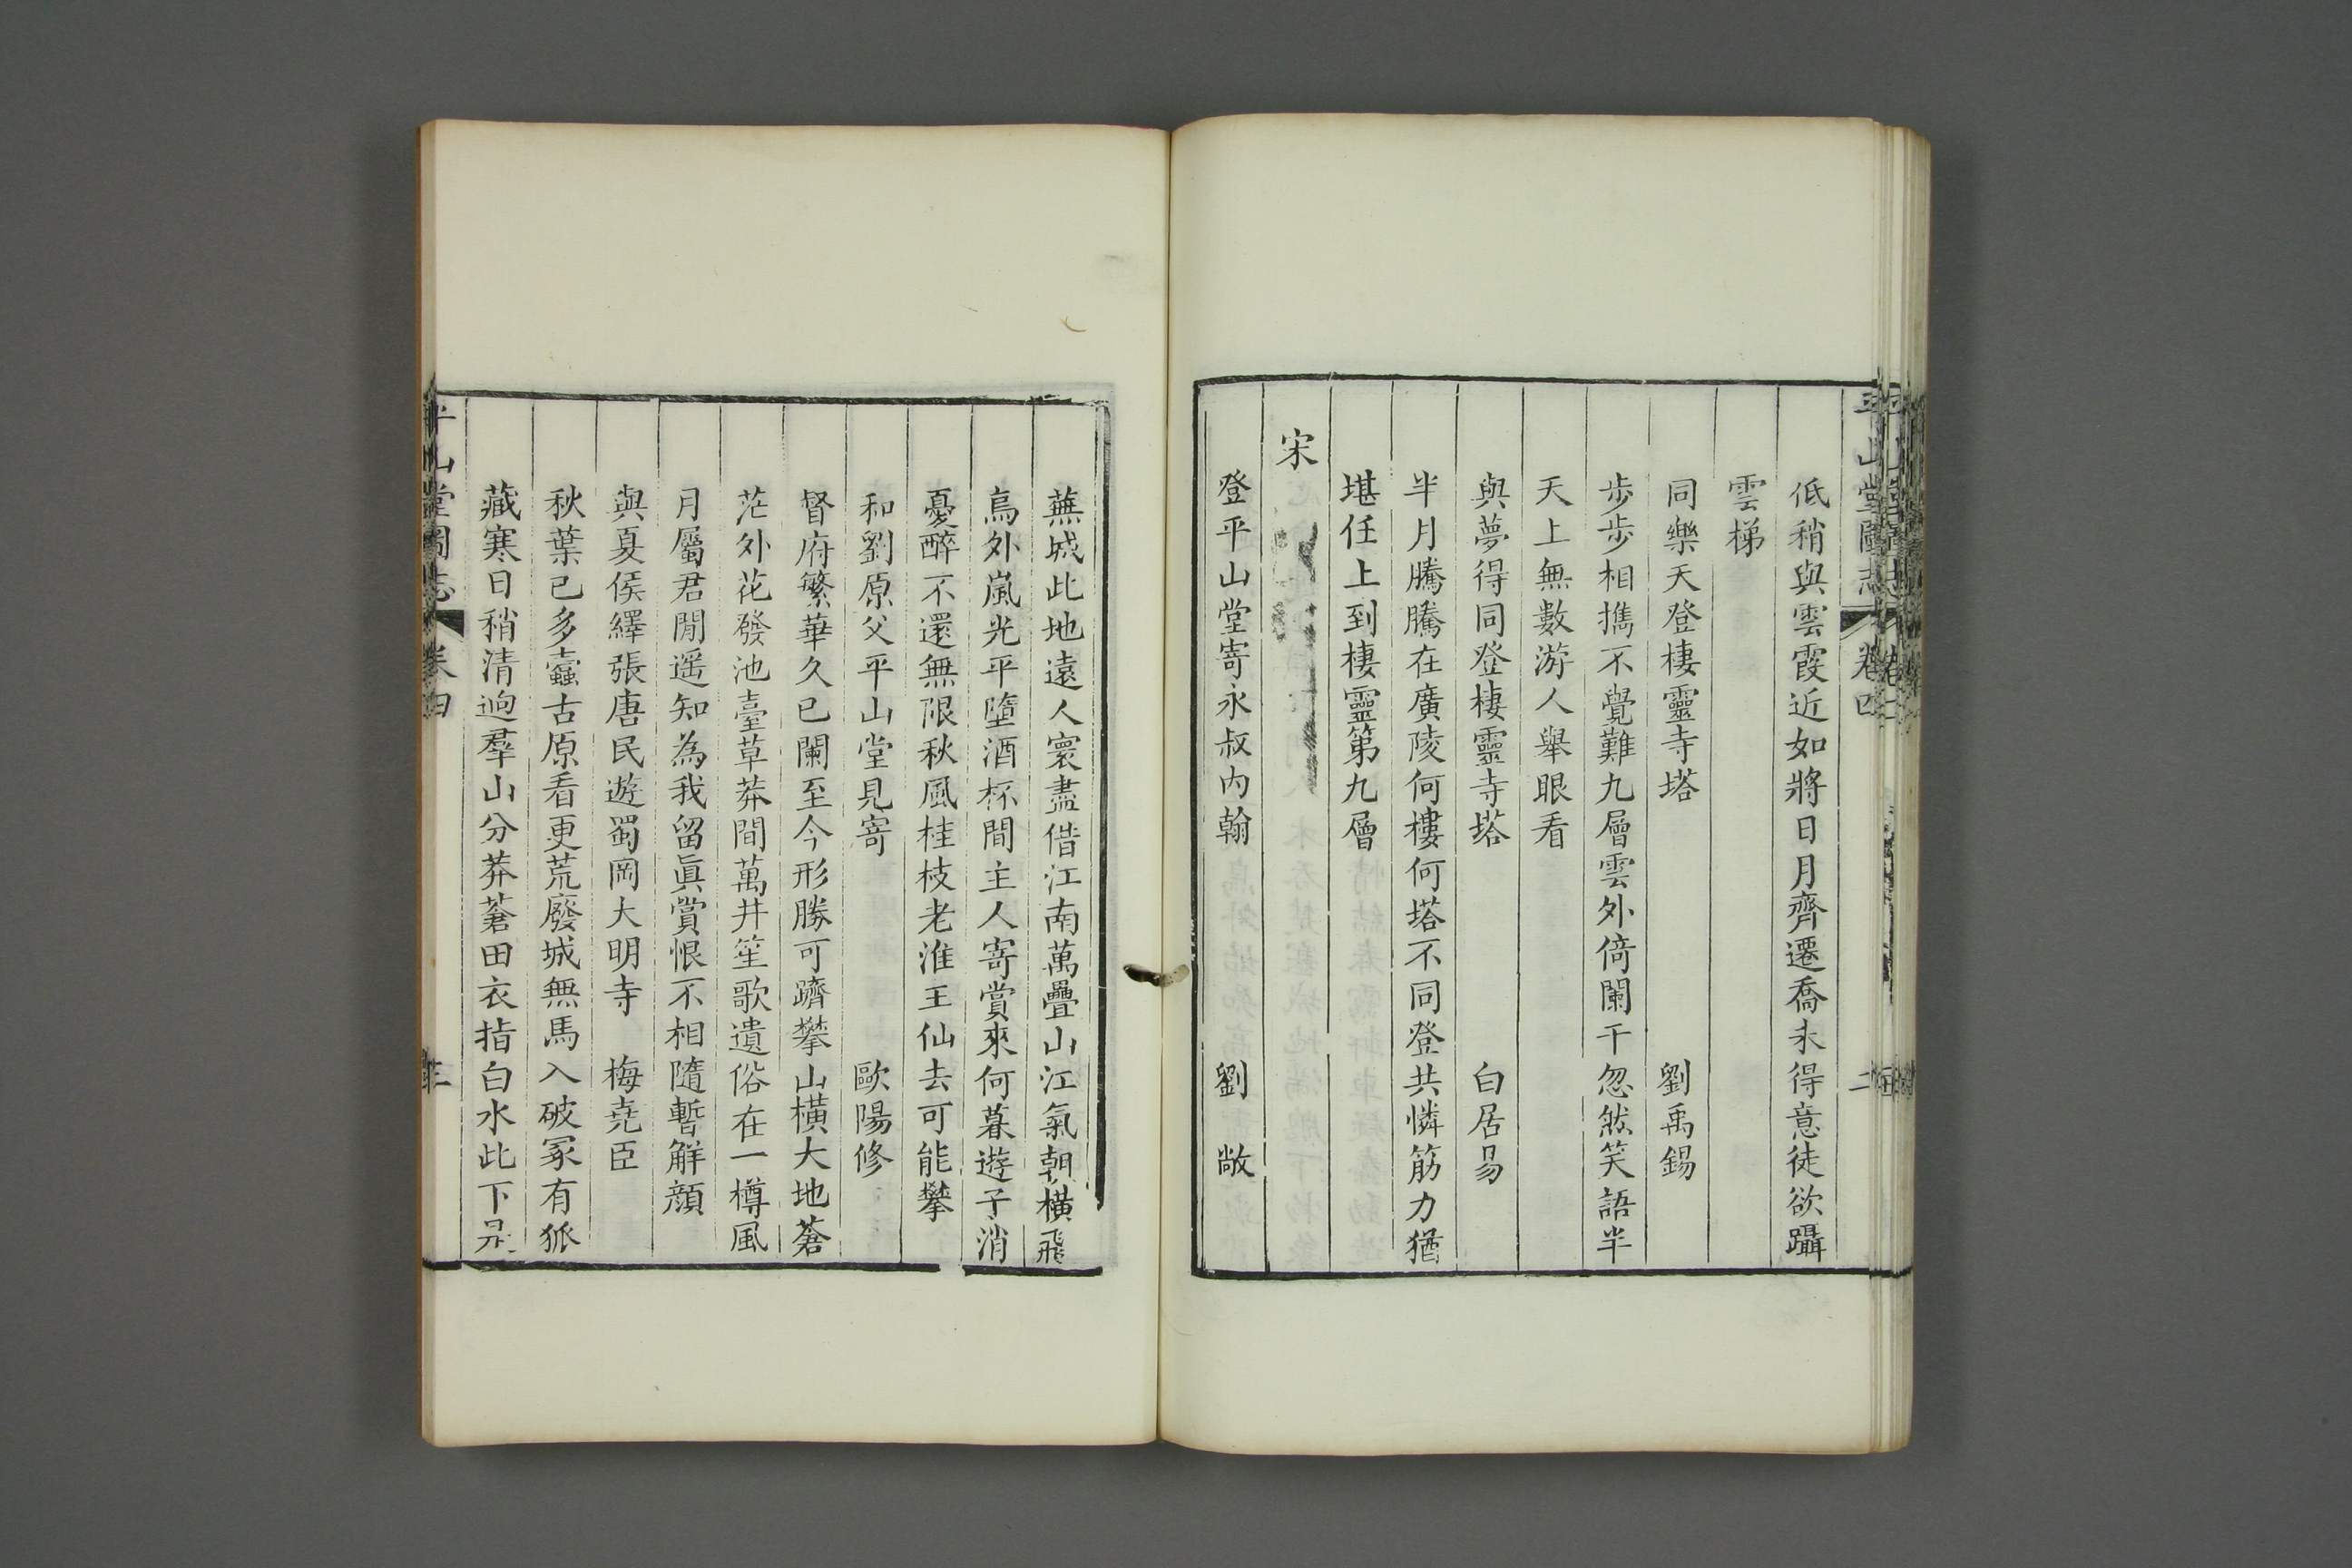 平山堂圖志 卷四 二
低稍與雲霞近如將日月齊遷喬未得意徒欲躡
雲梯
同樂天登棲靈寺塔 劉禹錫
步步相攜不覺難九層雲外倚闌干忽然笑語半
天上無數游人舉眼看
與夢得同登棲靈寺塔 白居易
半月騰騰在廣陵何樓何塔不同登共憐筋力猶
堪任上到棲靈第九層
宋
登平山堂寄永叔內翰 劉敞
蕪城此地遠人寰盡借江南萬疊山江氣朝橫飛
鳥外嵐光平墮酒杯間主人寄賞來何暮遊子消
憂醉不還無限秋風桂枝老淮王仙去可能攀
和劉原父平山堂見寄 歐陽修
督府繁華久已闌至今形勝可躋攀山橫大地蒼
茫外花發池臺草莽間萬井笙歌遺俗在一樽風
月屬君閒遥知為我留眞賞恨不相隨暫解顔
與夏侯繹張唐民遊蜀岡大明寺 梅堯臣
秋葉已多蠹古原看更荒廢城無馬入破冢有狐
藏寒日稍清迥羣山分莽蒼田衣指白水此下是
平山堂圖志 卷四 三